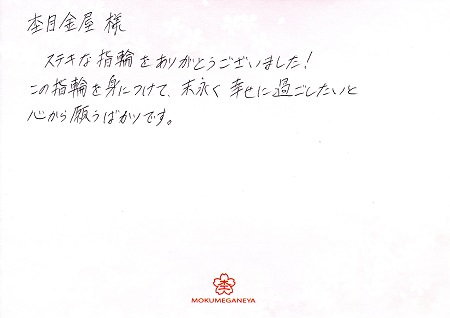 杢目金屋 様
ステキな指輪をありがとうございました!
この指輪を身につけて、末永く幸せに過ごしたいと
心から願うばかりです。
杢
MOKUMEGANEYA